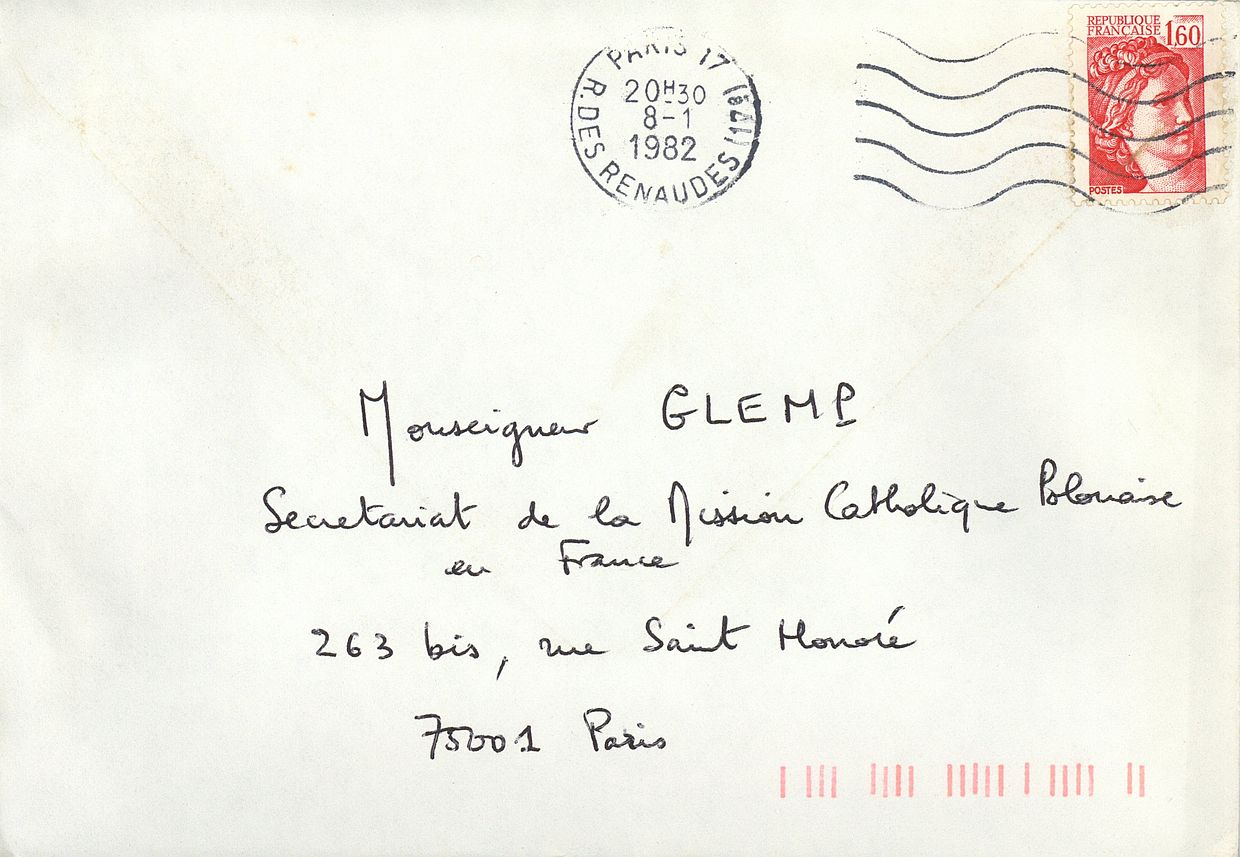 PARIS 17
20H30
8-1
1982
R. DES RENAUDES
REPUBLIQUE
FRANCAISE 1,60
POSTES
Monseigneur GLEMP
Secretariat de la Mission Catholique Polonaise
en France
263 bis, rue Saint Honoré
75001 Paris